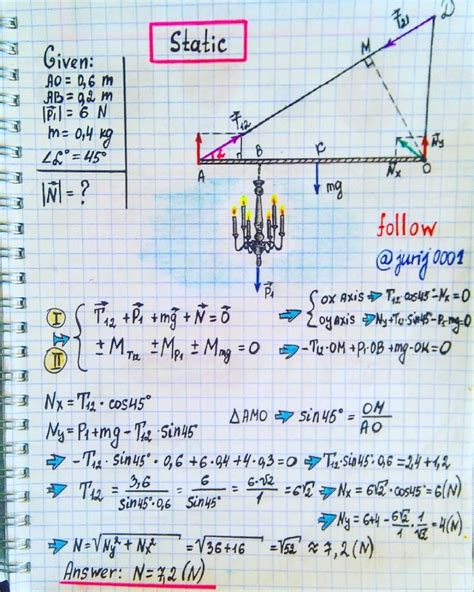 Static
Given:
AO = 0,6 m
AB = 0,2 m
|P⃗₁| = 6 N
m = 0,4 kg
∠α° = 45°
|N⃗| = ?
T⃗₂₁
D
M
T⃗₁₂
α
A
B
C
Nₓ
N⃗y
O
mg⃗
P⃗₁
follow
@jurij0001
I
II
T⃗₁₂ + P⃗₁ + mg⃗ + N⃗ = 0⃗
± M_T₁₂ ± M_P₁ ± M_mg = 0
OX Axis ⇒ T₁₂ · cos45° - Nₓ = 0
OY Axis ⇒ Ny + T₁₂ · sin45° - P₁ - mg = 0
⇒ -T₁₂ · OM + P₁ · OB + mg · OK = 0
Nₓ = T₁₂ · cos45°
△AMO ⇒ sin45° = OM / AO
Ny = P₁ + mg - T₁₂ · sin45
⇒ -T₁₂ · sin45° · 0,6 + 6 · 0,4 + 4 · 0,3 = 0 ⇒ T₁₂ · sin45° · 0,6 = 2,4 + 1,2
⇒ T₁₂ = 3,6 / sin45° · 0,6 = 6 / sin45° = 6 · √2 / 1 = 6√2 ⇒ Nₓ = 6√2 · cos45° = 6 (N)
⇒ Ny = 6 + 4 - 6√2 / 1 · 1 / √2 = 4 (N)
⇒ N = √Ny² + Nₓ² = √36 + 16 = √52 ≈ 7,2 (N)
Answer: N = 7,2 (N)